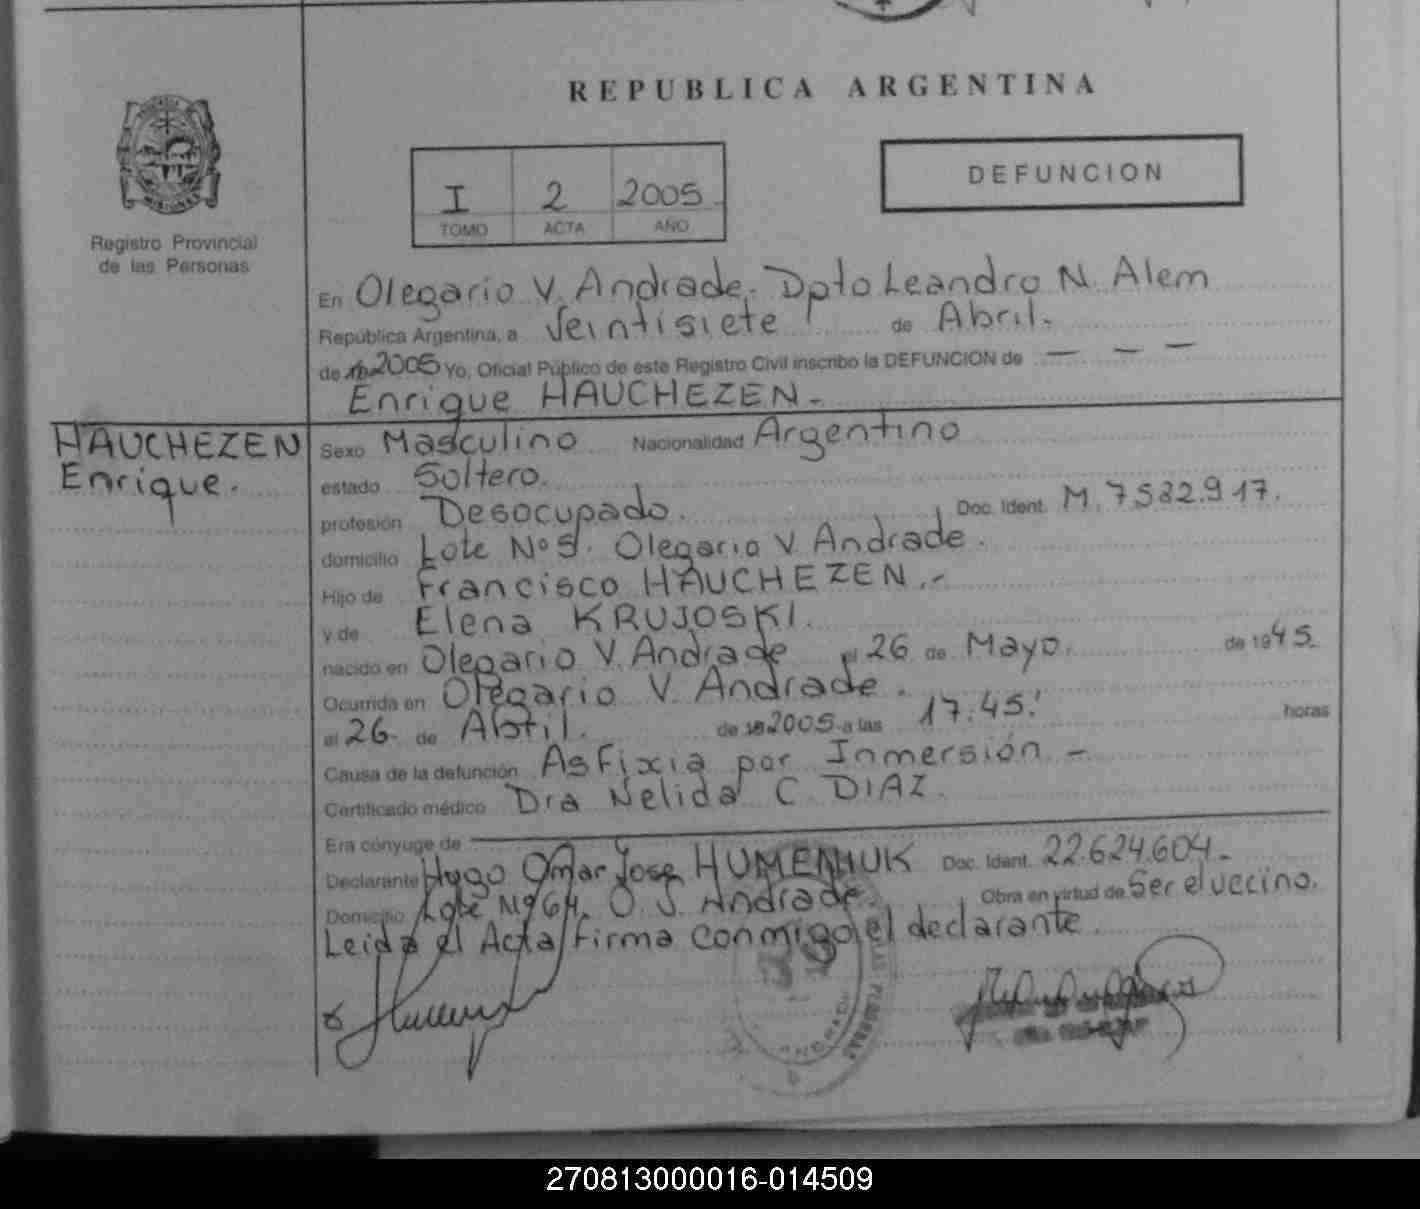 REPUBLICA ARGENTINA
I 2 2005
TOMO ACTA AÑO
DEFUNCION
Registro Provincial
de las Personas
En Olegario V. Andrade. Dpto Leandro N. Alem
República Argentina, a Veintisiete de Abril.
de 2005 Yo, Oficial Público de este Registro Civil inscribo la DEFUNCION de — — —
Enrique HAUCHEZEN.-
HAUCHEZEN
Enrique.
Sexo Masculino Nacionalidad Argentino
estado Soltero.
profesión Desocupado. Doc. Ident. M. 7.582.917.
domicilio Lote Nº 5. Olegario V Andrade.
Hijo de Francisco HAUCHEZEN.-
y de Elena KRUJOSKI.
nacido en Olegario V. Andrade el 26 de Mayo. de 1945.
Ocurrida en Olegario V. Andrade.
el 26. de Abril. de 2005 a las 17:45! horas
Causa de la defunción Asfixia por Inmersión -
Certificado médico Dra Nelida C. DIAZ.
Era cónyuge de
Declarante Hugo Omar Jose HUMENIUK Doc. Ident. 22.624.604.-
Domicilio Lote Nº 64. O. V. Andrade. Obra en virtud de Ser el vecino.
Leida el Acta firma conmigo el declarante.
270813000016-014509